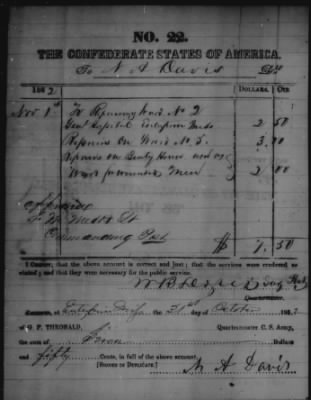 NO. 22.
THE CONFEDERATE STATES OF AMERICA.
To N A Davis Dr.
186 2. DOLLARS. CTS
Nov 1st To Repairing Ward No 2
Genl Hospital Enterprise Miss 2 50
Repairs on Ward No. 3. 3. 00
Repairs on House and
Ward for wounded Men 2 00
Approved
Commanding Post $ 7.50
I CERTIFY, that the above account is correct and just; that the services were rendered as
stated; and that they were necessary for the public service.
Quartermaster.
RECEIVED, at Enterprise Miss the 31st day of October 186 2
of G. P. THEOBALD, Quartermaster C. S. Army,
the sum of Seven Dollars
and fifty Cents, in full of the above account.
[SIGNED IN DUPLICATE.] N A Davis